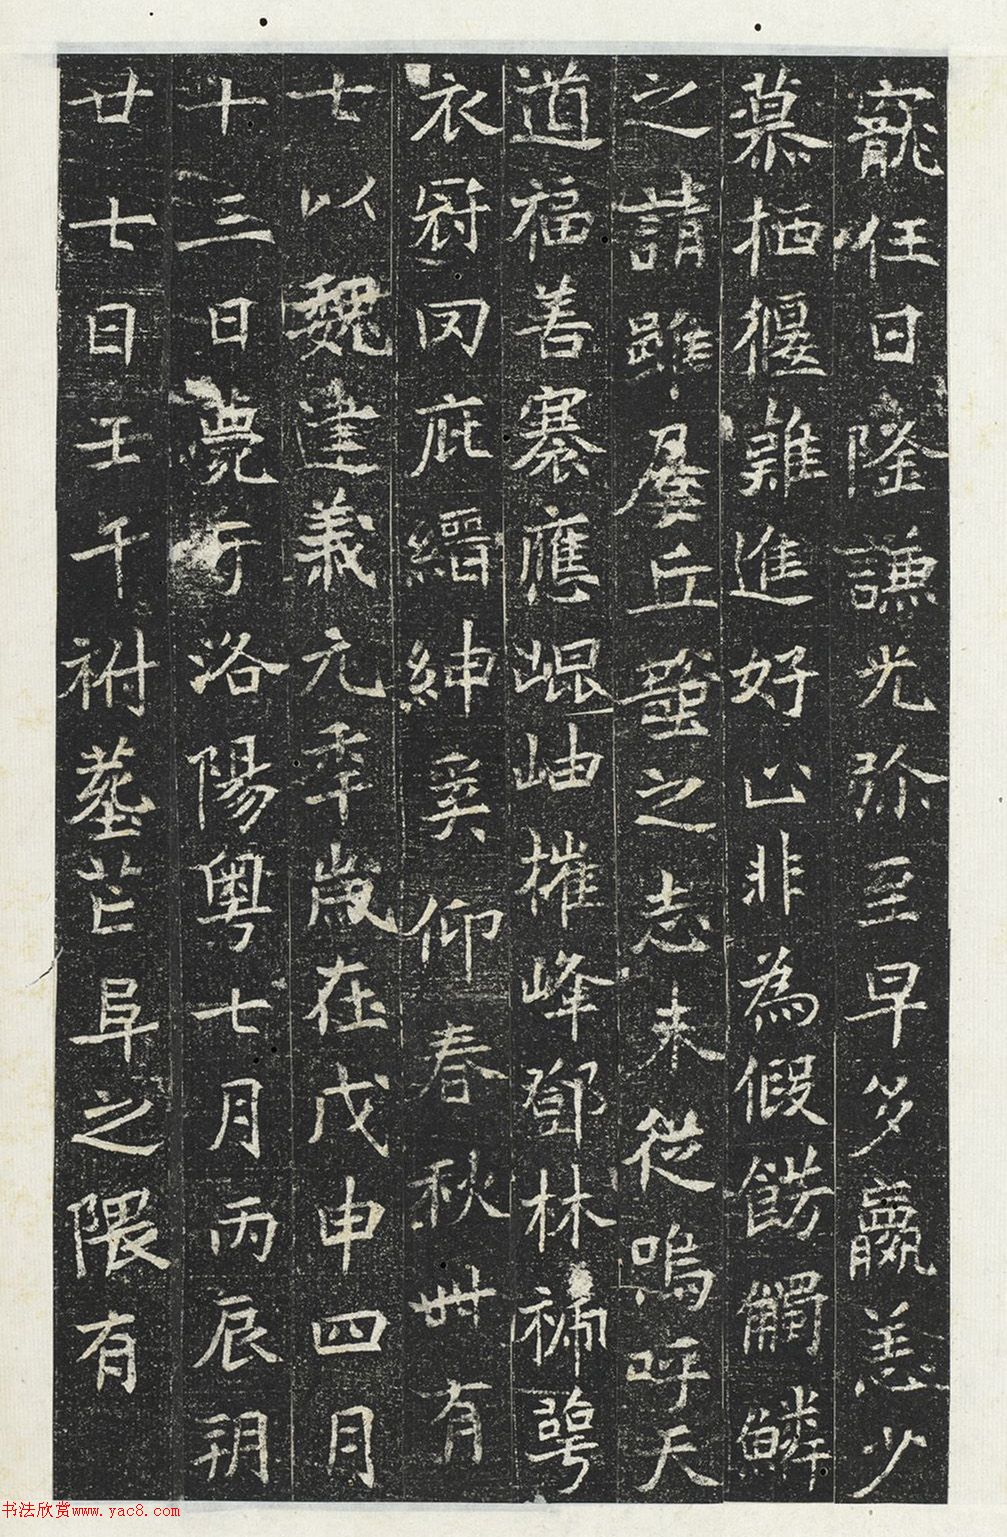 寵任日隆謙光弥至早多羸恙少
慕栖偃難進好止非為假餝觸鱗
之請雖屢丘壑之志未從嗚呼天
道福善褰應崐岫摧峰鄧林褫萼
衣冠罔庇縉紳奚仰春秋卌有
七以魏建義元秊歲在戊申四月
十三日薨于洛陽粵七月丙辰朔
廿七日壬午祔墓芒阜之隈有
书法欣赏www.yac8.com